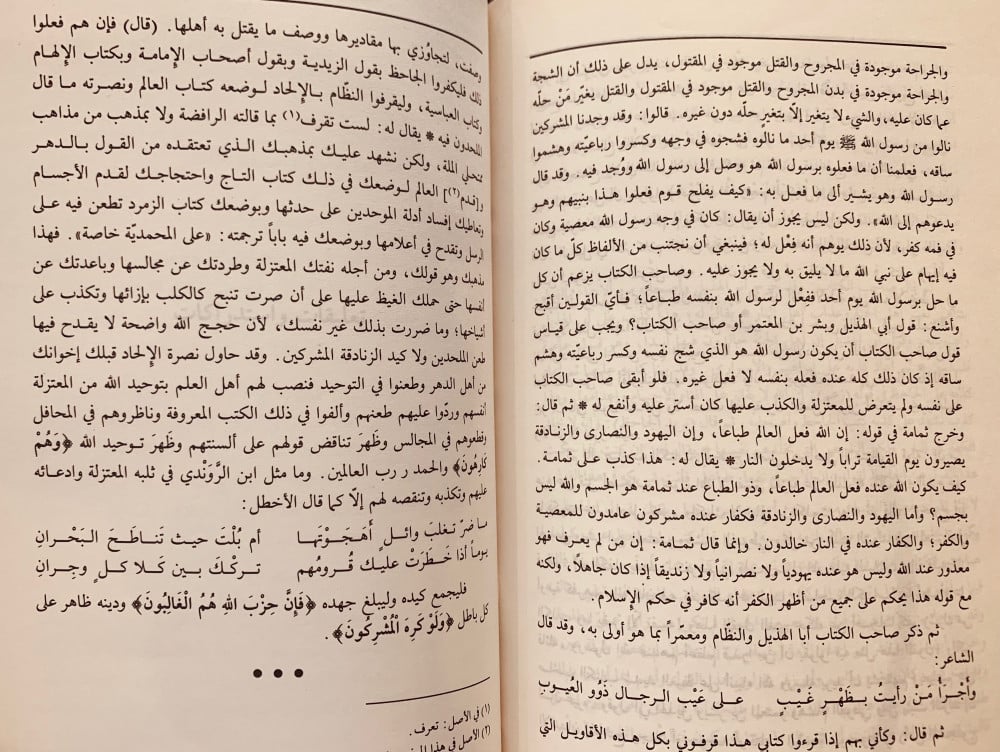 والجراحة موجودة في المجروح والقتل موجود في المقتول، يدل على ذلك أن الشجة
والجراحة موجودة في بدن المجروح والقتل موجود في المقتول والقتل يغيّر مَنْ حلّه
عما كان عليه، والشيء لا يتغير إلّا بتغير حلّه دون غيره. قالوا: وقد وجدنا المشركين
نالوا من رسول الله ﷺ يوم أحد ما نالوه فشجوه في وجهه وكسروا رباعيّته وهشموا
ساقه، فعلمنا أن ما فعلوه برسول الله هو وصل إلى رسول الله ووُجد فيه. وقد قال
رسول الله وهو يشير الى ما فعل به: «كيف يفلح قوم فعلوا هذا بنبيهم وهو
يدعوهم إلى الله». ولكن ليس يجوز أن يقال: كان في وجه رسول الله معصية وكان
في فمه كفر، لأن ذلك يوهم أنه فِعْل له؛ فينبغي أن نجتنب من الألفاظ كلّ ما كان
فيه إيهام على نبي الله ما لا يليق به ولا يجوز عليه. وصاحب الكتاب يزعم أن كل
ما حل برسول الله يوم أحد ففِعْل لرسول الله بنفسه طباعاً؛ فأيّ القولين أقبح
وأشنع: قول أبي الهذيل وبشر بن المعتمر أو صاحب الكتاب؟ ويجب على قياس
قول صاحب الكتاب أن يكون رسول الله هو الذي شج نفسه وكسر رباعيّته وهشم
ساقه إذ كان ذلك كله عنده فعله بنفسه لا فعل غيره. فلو أبقى صاحب الكتاب
على نفسه ولم يتعرض للمعتزلة والكذب عليها كان أستر عليه وأنفع له * ثم قال:
وخرج ثمامة في قوله: إن الله فعل العالم طباعاً، وإن اليهود والنصارى والزنادقة
يصيرون يوم القيامة تراباً ولا يدخلون النار * يقال له: هذا كذب على ثمامة.
كيف يكون الله عنده فعل العالم طباعاً، وذو الطباع عند ثمامة هو الجسم والله ليس
بجسم؟ وأما اليهود والنصارى والزنادقة فكفار عنده مشركون عامدون للمعصية
والكفر؛ والكفار عنده في النار خالدون. وإنما قال ثمامة: إن من لم يعرف فهو
معذور عند الله وليس هو عنده يهودياً ولا نصرانياً ولا زنديقاً إذا كان جاهلًا، ولكنه
مع قوله هذا يحكم على جميع من أظهر الكفر أنه كافر في حكم الإسلام.
ثم ذكر صاحب الكتاب أبا الهذيل والنظّام ومعمّراً بما هو أولى به، وقد قال
الشاعر:
وأَجْرَأُ مَنْ رأيتُ بظَهْرِ غَيْبٍ على عَيْبِ الرجالِ ذَوُو العُيوبِ
ثم قال: وكأني بهم إذا قرءوا كتابي هذا قرفوني بكل هذه الأقاويل التي
وصفت، لتجاوُزي بها مقاديرها ووصف ما يقتل به أهلها. (قال) فإن هم فعلوا
ذلك فليكفروا الجاحظ بقول الزيدية وبقول أصحاب الإمامة وبكتاب الإلهام
وكتاب العباسية، وليقرفوا النظّام بالإلحاد لوضعه كتاب العالم ونصرته ما قال
الملحدون فيه * يقال له: لست تقرف(١) بما قالته الرافضة ولا بمذهب من مذاهب
منتحلي الملة، ولكن نشهد عليك بمذهبك الذي تعتقده من القول بالدهر
و[قدم(٢)] العالم لوضعك في ذلك كتاب التاج واحتجاجك لقدم الأجسام
وتعاطيك إفساد أدلة الموحدين على حدثها وبوضعك كتاب الزمرد تطعن فيه على
الرسل وتقدح في أعلامها وبوضعك فيه باباً ترجمته: «على المحمديّة خاصة». فهذا
مذهبك وهو قولك، ومن أجله نفتك المعتزلة وطردتك عن مجالسها وباعدتك عن
انفسها حتى حملك الغيظ عليها على أن صرت تنبح كالكلب بإزائها وتكذب على
أشياخها؛ وما ضررت بذلك غير نفسك، لأن حجج الله واضحة لا يقدح فيها
طعن الملحدين ولا كيد الزنادقة المشركين. وقد حاول نصرة الإلحاد قبلك إخوانك
من أهل الدهر وطعنوا في التوحيد فنصب لهم أهل العلم بتوحيد الله من المعتزلة
أنفسهم وردّوا عليهم طعنهم وألفوا في ذلك الكتب المعروفة وناظروهم في المحافل
وقطعوهم في المجالس وظَهَرَ تناقض قولهم على ألسنتهم وظَهَرَ توحيد الله ﴿وَهُمْ
كَارِهُونَ﴾ والحمد ر رب العالمين. وما مثل ابن الرَّوَنْدي في ثلبه المعتزلة وادعائه
عليهم وتكذبه وتنقصه لهم إلّا كما قال الأخطل:
ما ضرّ تغلبَ وائلٍ أَهَجَوْتَها أم بُلْتَ حيث تَناطَحَ البَحْرانِ
يوماً أذا خطَرَتْ عليك قُرومُهم تركْكَ بين كَلاكلٍ وجِرانِ
فليجمع كيده وليبلغ جهده ﴿فَإِنَّ حِزْبَ اللهِ هُمُ الْغَالِبُونَ﴾ ودينه ظاهر على
كل باطل ﴿وَلَوْ كَرِهَ الْمُشْرِكُونَ﴾.
(١) في الأصل: تعرف.
(٢) الأصل في هذا